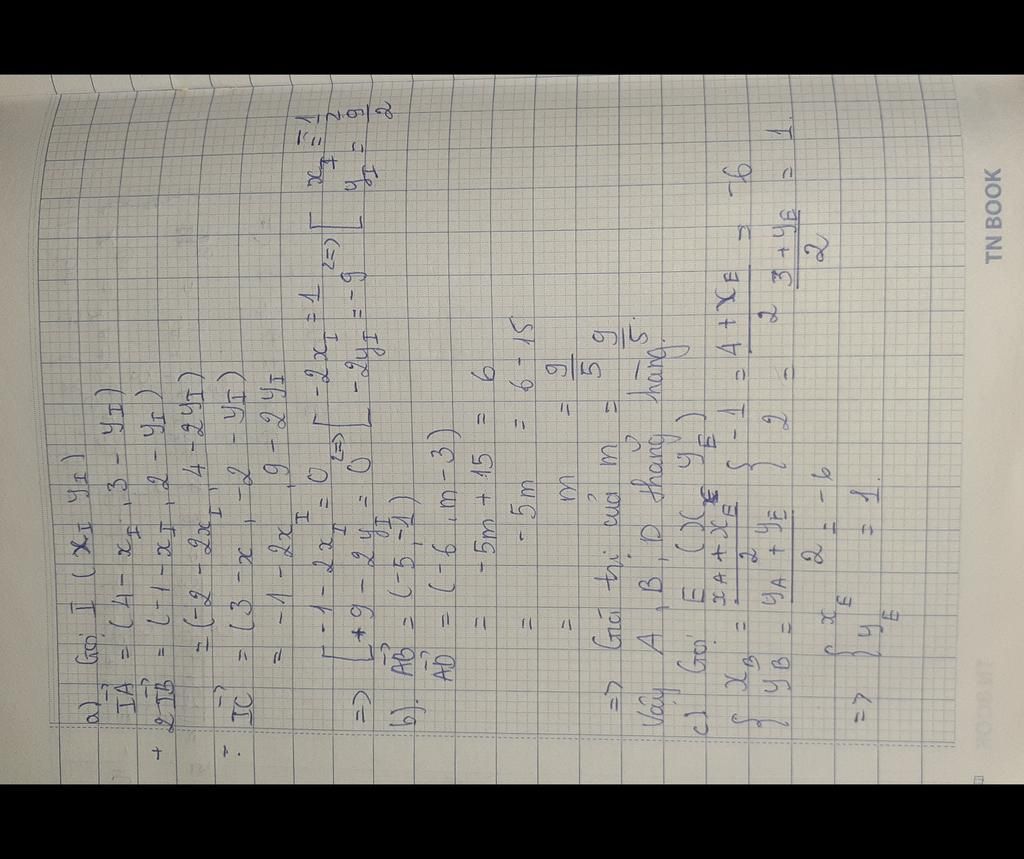 a) Gọi I (x_I y_I)
IA→ = (4 - x_I, 3 - y_I)
+ 2IB→ = (-1 - x_I, 2 - y_I)
= (-2 - 2x_I, 4 - 2y_I)
- IC→ = (3 - x, -2 - y_I)
= -1 - 2x_I, 9 - 2y_I
=> [ -1 - 2x_I = 0 <=> [ -2x_I = 1 <=> [ x_I = -1/2
[ +9 - 2y_I = 0 [ -2y_I = -9 [ y_I = 9/2
b). AB→ = (-5, -1)
AD→ = (-6, m - 3)
= -5m + 15 = 6
= -5m = 6 - 15
= m = 9/5
=> Giá trị của m = 9/5.
Vậy A, B, D thẳng hàng.
c) Gọi E (x_E y_E)
{ x_B = (x_A + x_E)/2 { -1 = (4 + x_E)/2 = -6
{ y_B = (y_A + y_E)/2 { 2 = (3 + y_E)/2 = 1.
=> { x_E = -6
{ y_E = 1.
TN BOOK